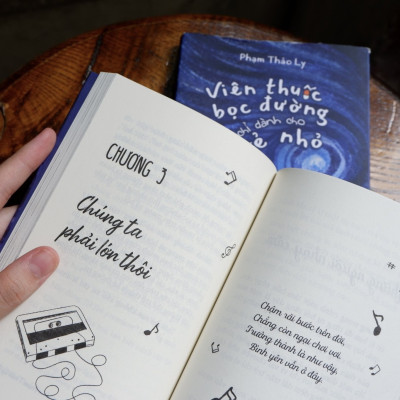 Phạm Thảo Ly
Viên thuốc
bọc đường
chỉ dành cho
nhỏ
CHƯƠNG 3
Chúng ta
phải lớn thôi
Chậm rãi bước trên đời,
Chẳng còn ngại chơi vơi.
Trưởng thành là như vậy,
Bình yên vẫn ở đây.